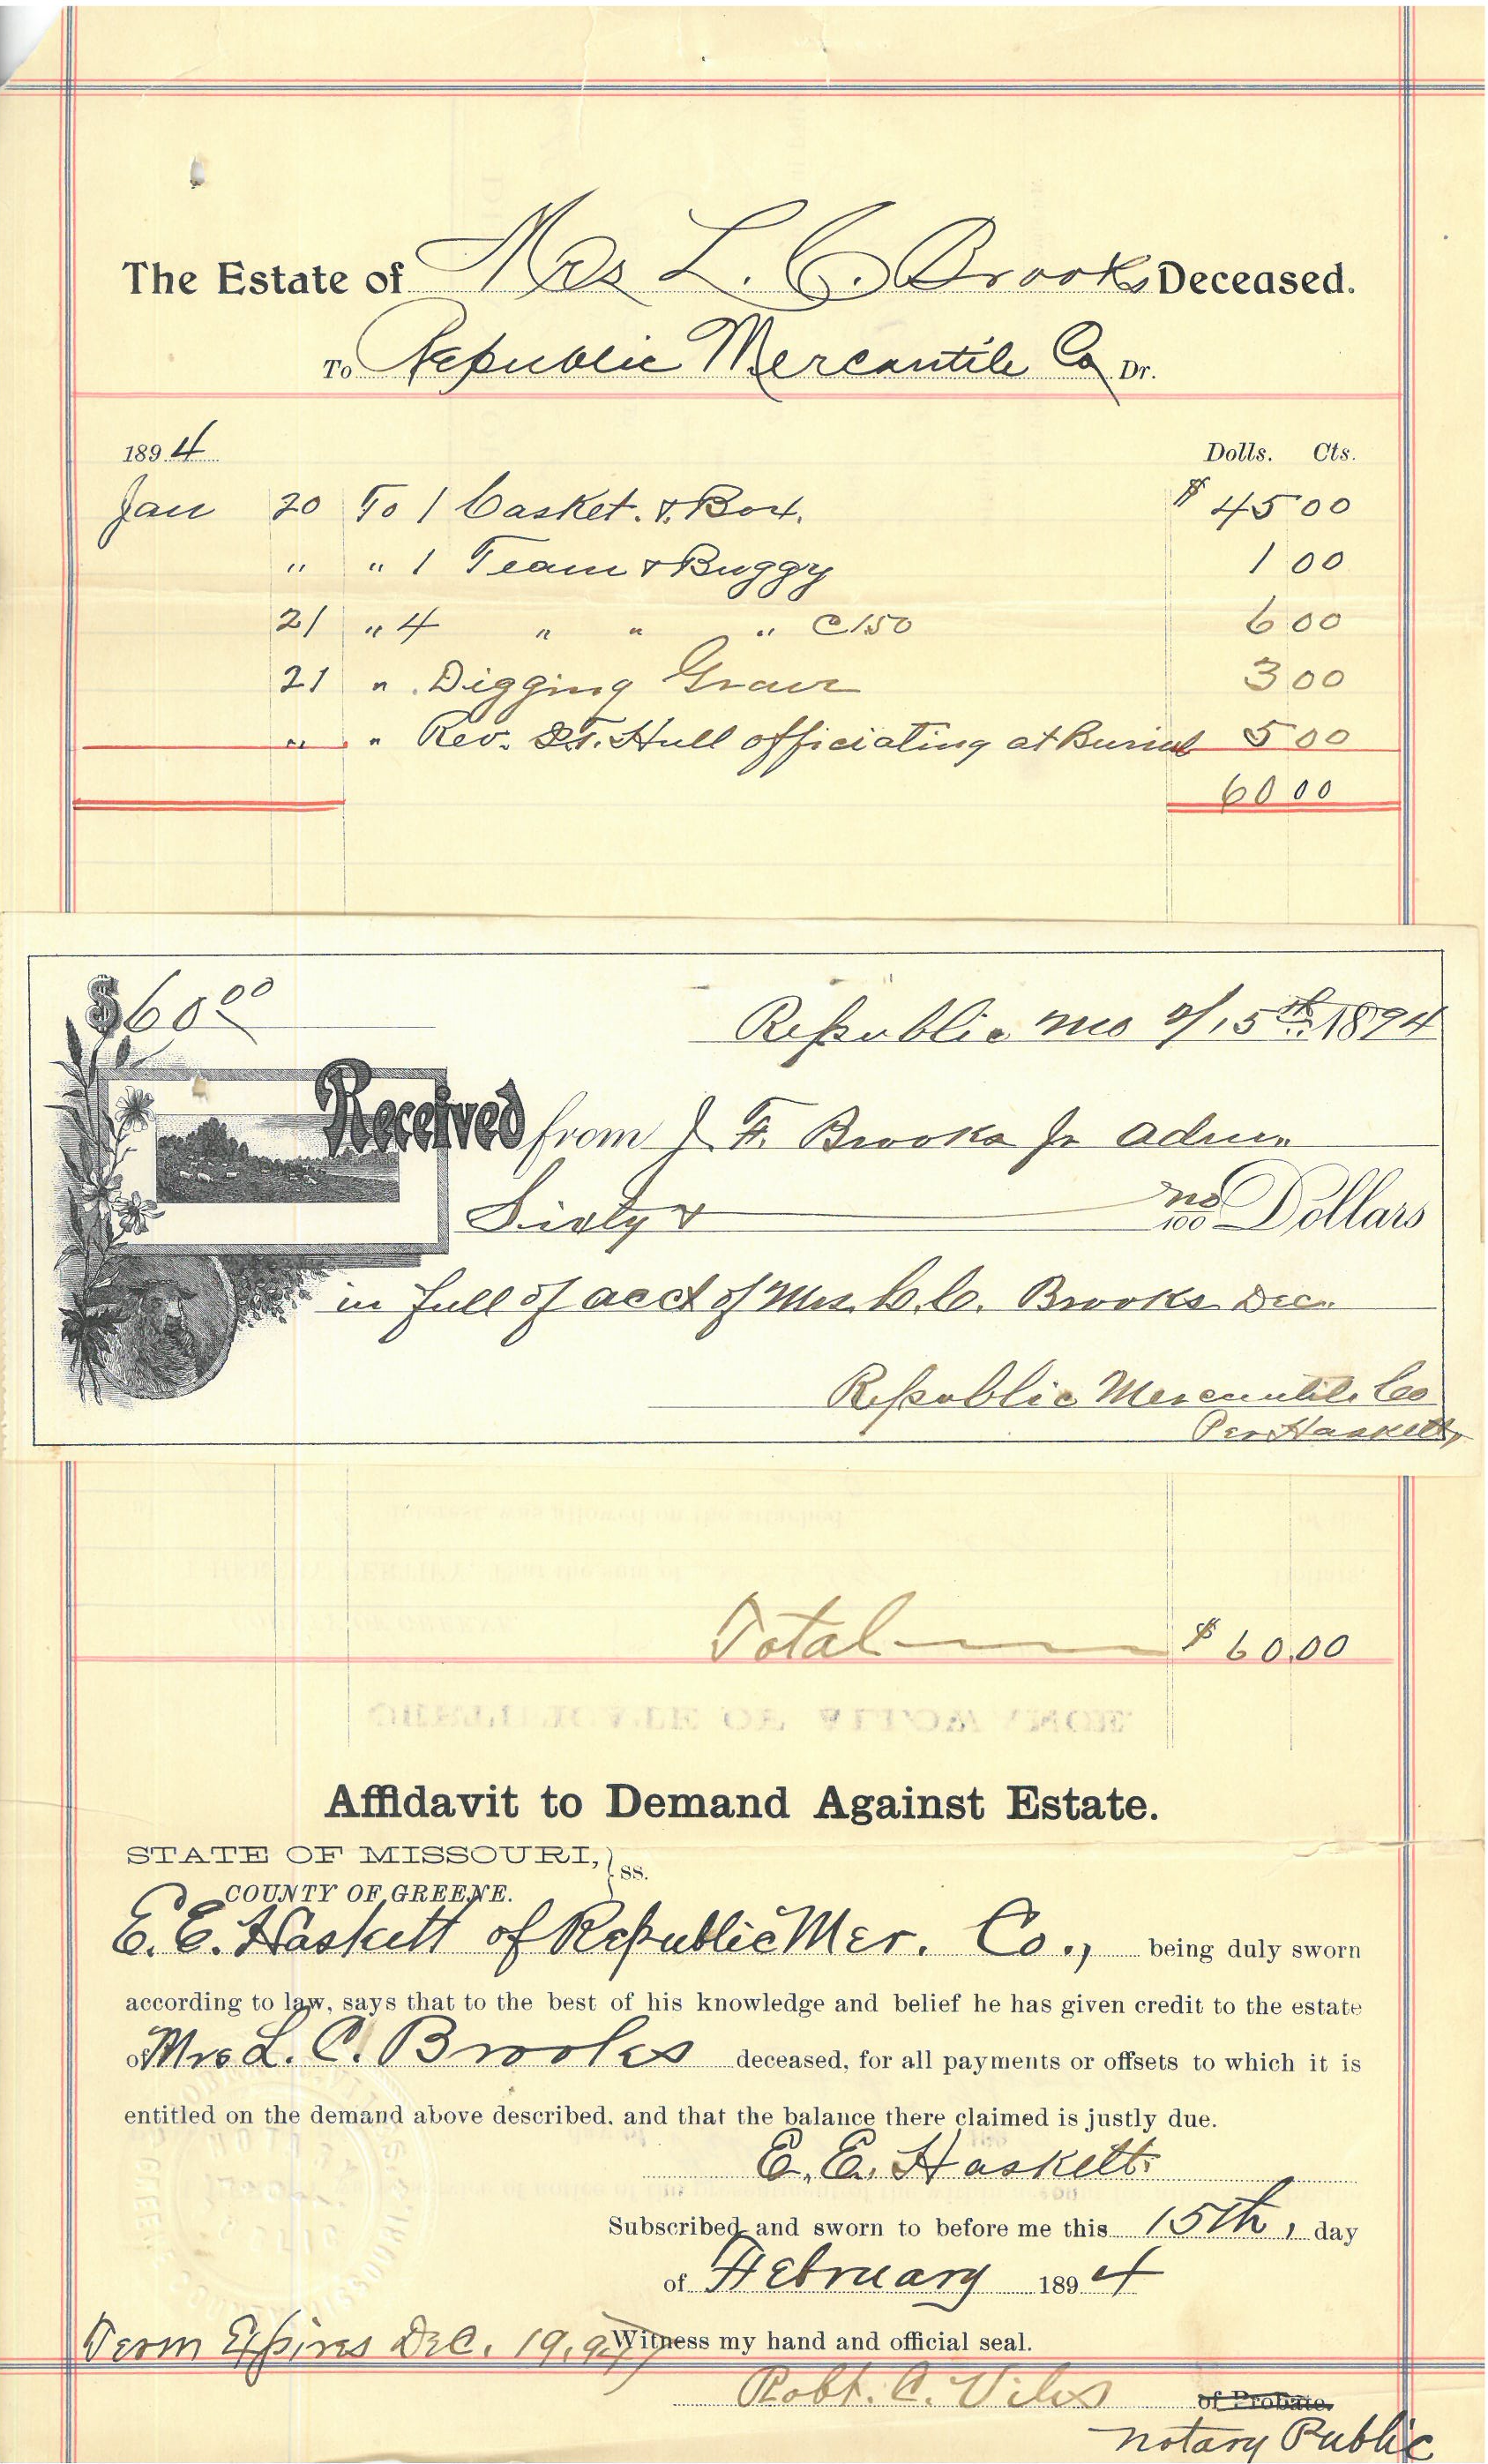 The Estate of Mrs L. C. Brooks Deceased.
To Republic Mercantile Co Dr.
1894 Dolls. Cts.
Jan 20 To 1 Casket. & Box. $ 45 00
" " 1 Team & Buggy 1 00
21 " 4 " " " @ 1.50 6 00
21 " Digging Grave 3 00
" " Rev. Hull officiating at Burial 5 00
60 00
$60 00
Republic Mo 2/15th 1894
Received from J F. Brooks Jr adm.
Sixty & no/100 Dollars
in full of acct of Mrs. C. Brooks Dec.
Republic Mercantile Co
Per Haskett
Total $ 60.00
Affidavit to Demand Against Estate.
STATE OF MISSOURI, } ss.
COUNTY OF GREENE.
E. E. Haskett of Republic Mer. Co., being duly sworn
according to law, says that to the best of his knowledge and belief he has given credit to the estate
of Mrs L. C. Brooks deceased, for all payments or offsets to which it is
entitled on the demand above described, and that the balance there claimed is justly due.
E. E. Haskett.
Subscribed and sworn to before me this 15th, day
of February 1894
Term Expires Dec. 19, 97 Witness my hand and official seal.
Robt. C. Viles of Probate.
Notary Public